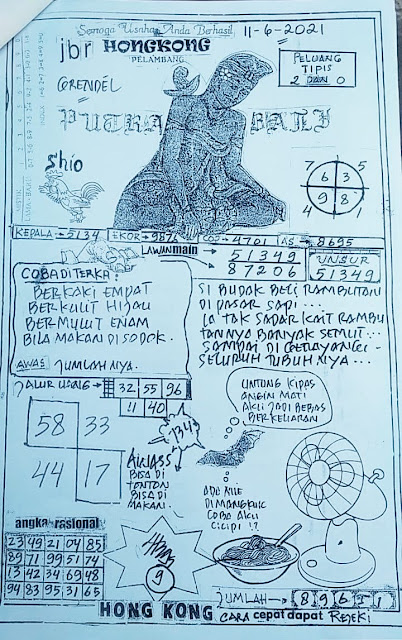 Semoga Usaha Anda Berhasil
11-6-2021
jbr HONGKONG
PELAMBANG
GRENDEL
PELUANG
TIPIS
2 DAN 0
PUTRA BALI
Shio
7 5
6 3
9 8
4 1
KEPALA → 5134 EKOR → 9876 COP → 4701 AS → 8695
LAWAN main
51349
87206
UNSUR
51349
COBA DI TERKA:
BERKAKI EMPAT
BERKULIT HIJAU
BERMULUT ENAM
BILA MAKAN DISODOK.
AWAS JUMLAH NYA.
SI BUDOK BELI RAMBUTAN
DI PASAR SAPI...
IA TAK SADAR KAIT RAMBU
TANNYA BANYAK SEMUT...
SAMPAI DI
SELURUH TUBUH NYA...
JALUR UANG → 32 55 96
11 40
134
58 33
44 17
AIRIASS
BISA DI
TONTON
BISA DI
MAKAN.
UNTUNG KIPAS
ANGIN MATI
AKU JADI BEBAS
BERKELIARAN
ADA MIE
DI MANGKUK
COBA AKU
CICIPI !?
angka rasional
23 49 21 04 85
89 71 99 51 74
13 42 34 69 48
94 83 95 31 65
9
JUMLAH → 8 9 6 5 1
HONG KONG CARA cepat dapat REJEKI